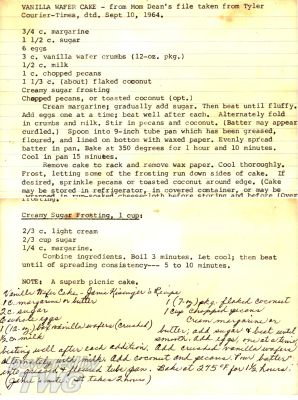 VANILLA WAFER CAKE - from Mom Dean's file taken from Tyler
Courier-Times, dtd. Sept 10, 1964.
3/4 c. margarine
1 1/2 c. sugar
6 eggs
3 c. vanilla wafer crumbs (12-oz. pkg.)
1/2 c. milk
1 c. chopped pecans
1 1/3 c. (about) flaked coconut
Creamy sugar frosting
Chopped pecans, or toasted coconut (opt.)
Cream margarine; gradually add sugar. Then beat until fluffy.
Add eggs one at a time; beat well after each. Alternately fold
in crumbs and milk. Stir in pecans and coconut. (Batter may appear
curdled.) Spoon into 9-inch tube pan which has been greased,
floured, and lined on bottom with waxed paper. Evenly spread
batter in pan. Bake at 350 degrees for 1 hour and 10 minutes.
Cool in pan 15 minutes.
Remove cake to rack and remove wax paper. Cool thoroughly.
Frost, letting some of the frosting run down sides of cake. If
desired, sprinkle pecans or toasted coconut around edge. (Cake
may be stored in refrigerator, in covered container, or may be
wrapped in rum-soaked cheesecloth before storing and before (over
frosting.
Creamy Sugar Frosting, 1 cup:
2/3 c. light cream
2/3 cup sugar
1/4 c. margarine.
Combine ingredients. Boil 3 minutes. Let cool; then beat
until of spreading consistency--- 5 to 10 minutes.
NOTE: A superb picnic cake.
Vanilla Wafer Cake - Janie Kissinger's Recipe
1 c. margarine or butter
2 c. sugar
6 whole eggs
1 (12 oz.) box vanilla wafers (crushed)
1/2 c. milk
1 (7 oz.) pkg. flaked coconut
1 cup chopped pecans
Cream margarine, or
butter, add sugar & beat until
smooth. Add eggs, one at a time,
beating well after each addition. Add crushed vanilla wafers
alternately with milk. Add coconut and pecans. Pour batter
into greased & floured tube pan. Bake at 275° F for 1 1/2 hours.
(Janie said it takes 2 hours)